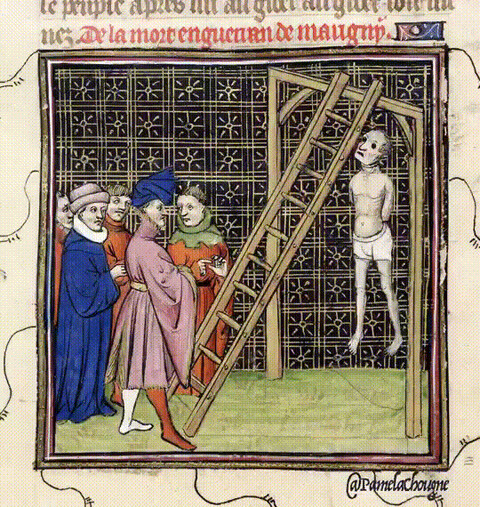 le peuple apres
nez. De la mort engueran de maugny.
@PamelaChougne